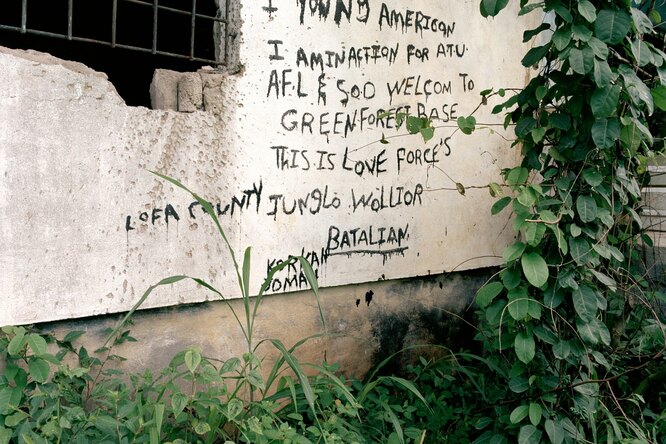 I YOUNG AMERICAN
I AM INACTION FOR ATU.
AFL & SOD WELCOM TO
GREEN FOREST BASE
THIS IS LOVE FORCE'S
LOFA COUNTY JUNGLO WOLLIOR
BATALIAN
KORVAN
DOMA